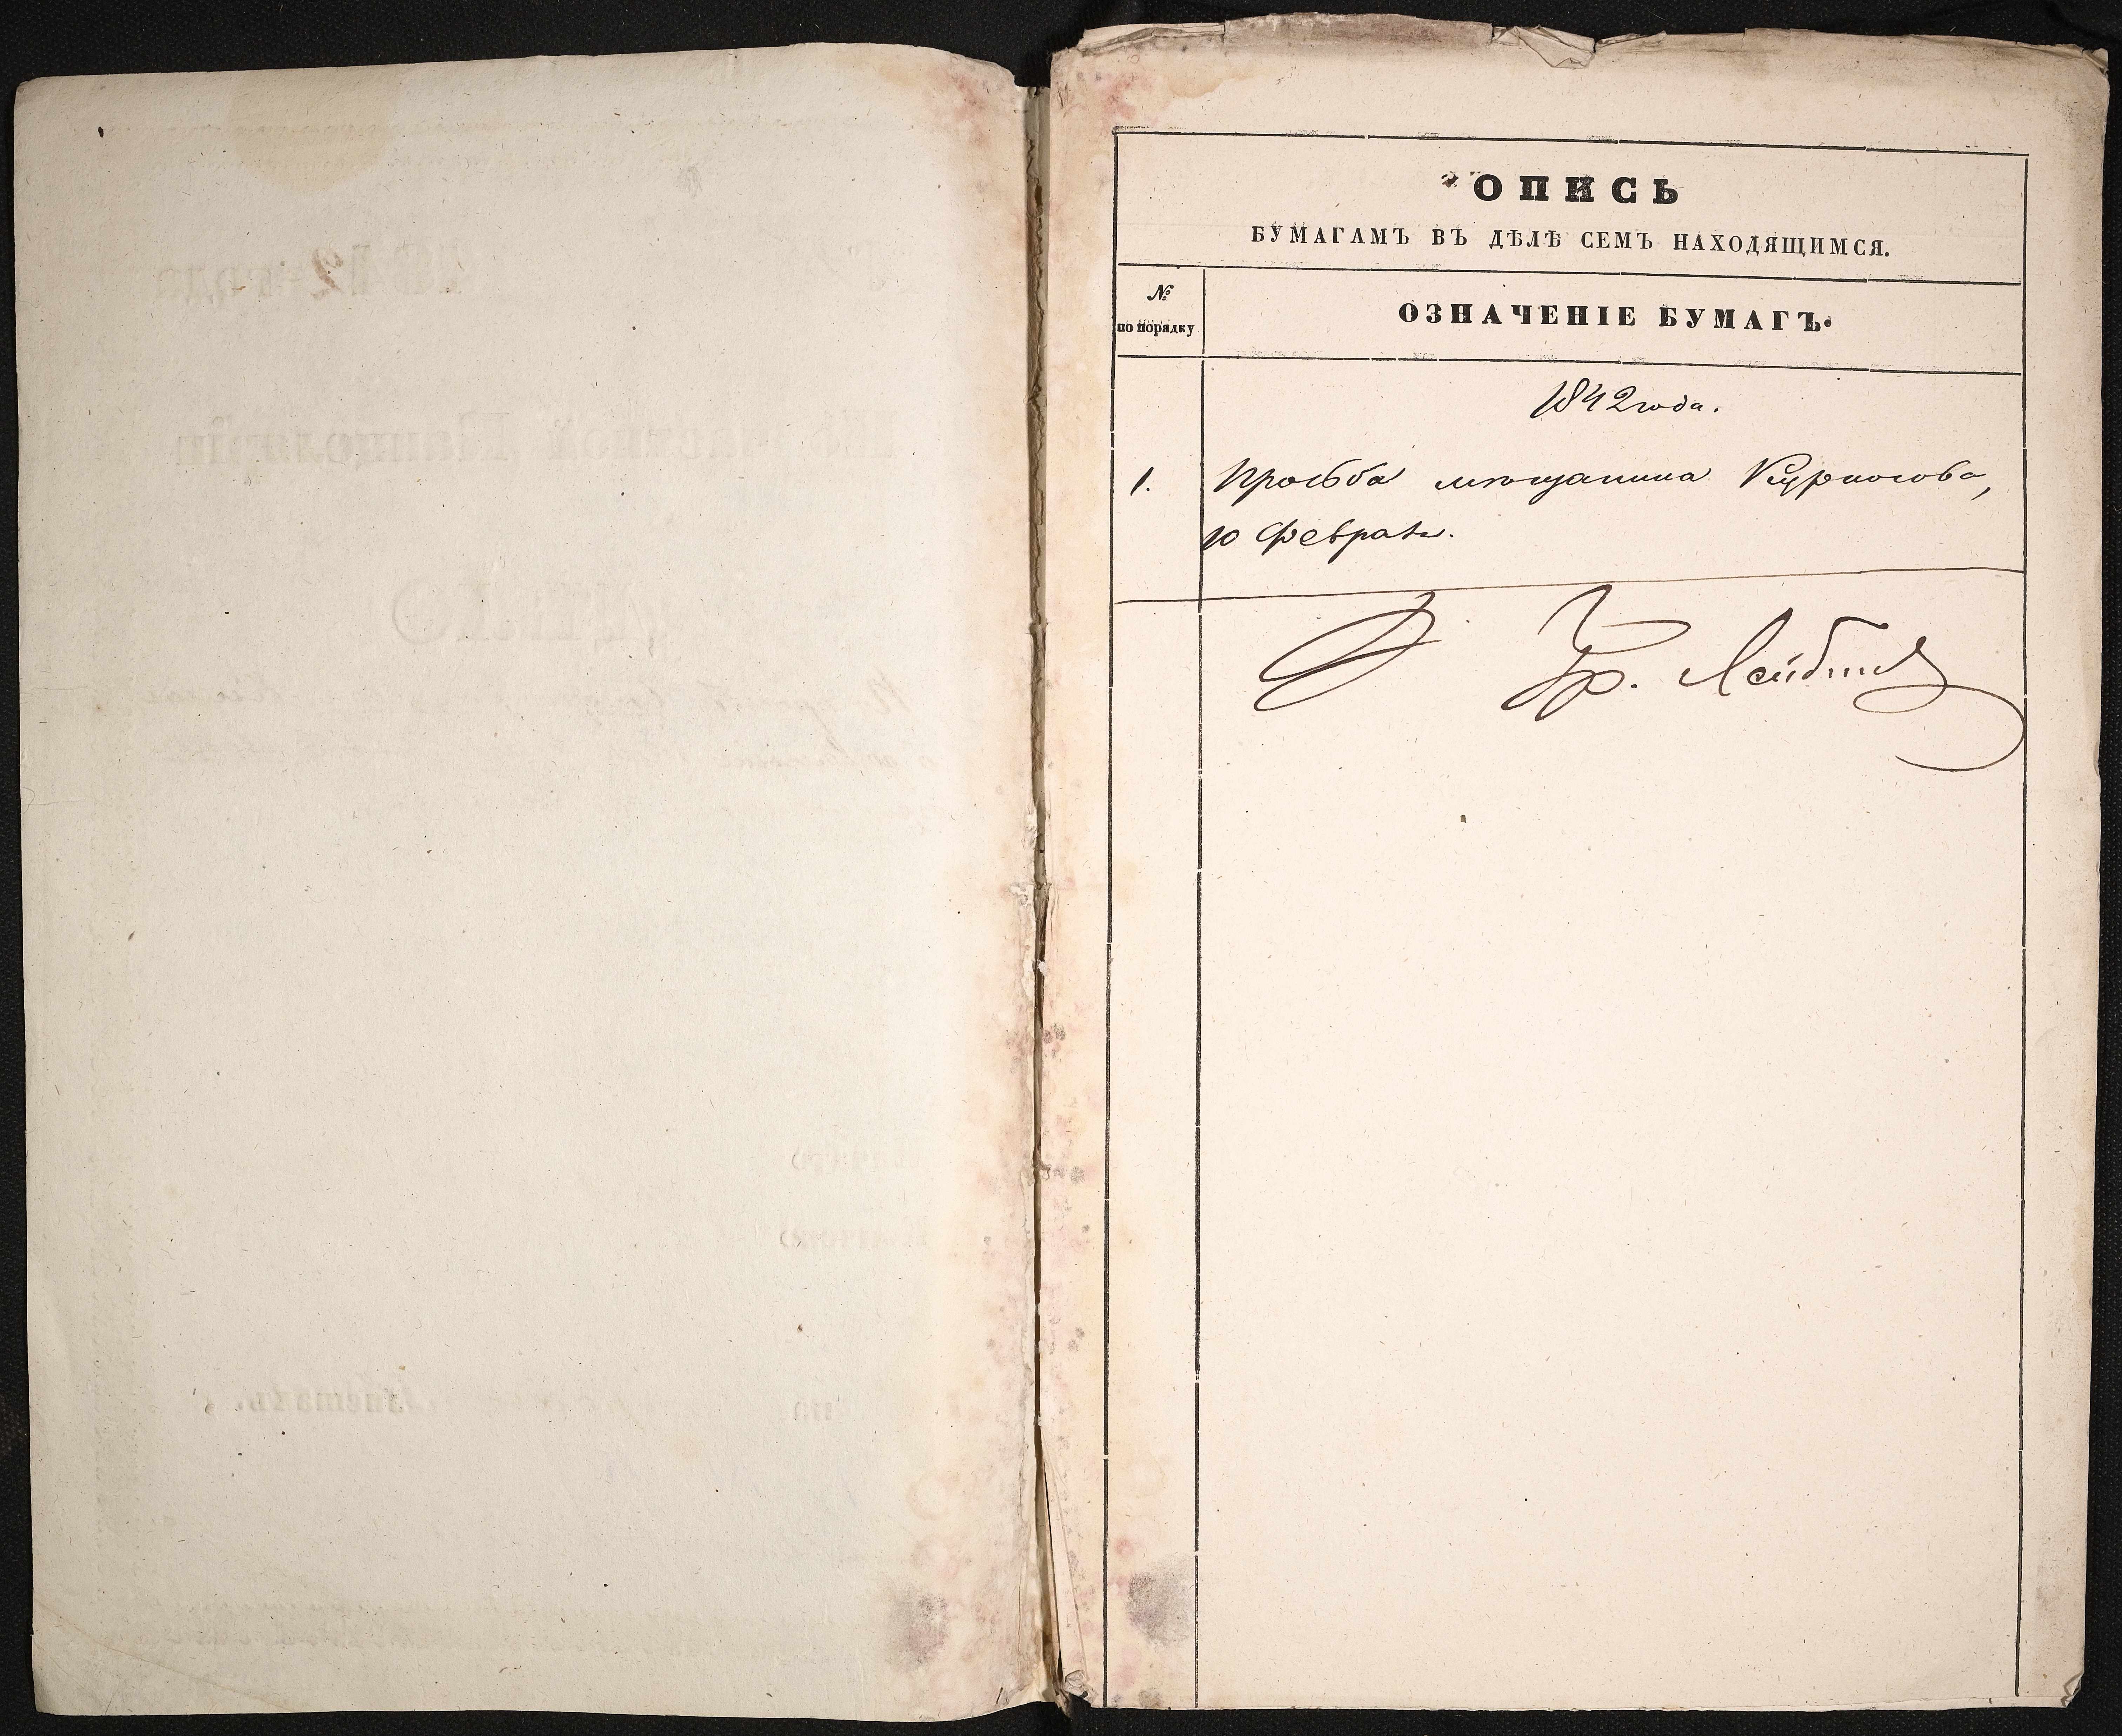 ОПИСЬ
БУМАГАМЪ ВЪ ДѢЛѢ СЕМЪ НАХОДЯЩИМСЯ.
№
по порядку
ОЗНАЧЕНІЕ БУМАГЪ.
1842 года.
1. Просьба мѣщанина Курносова,
10 Февраля.